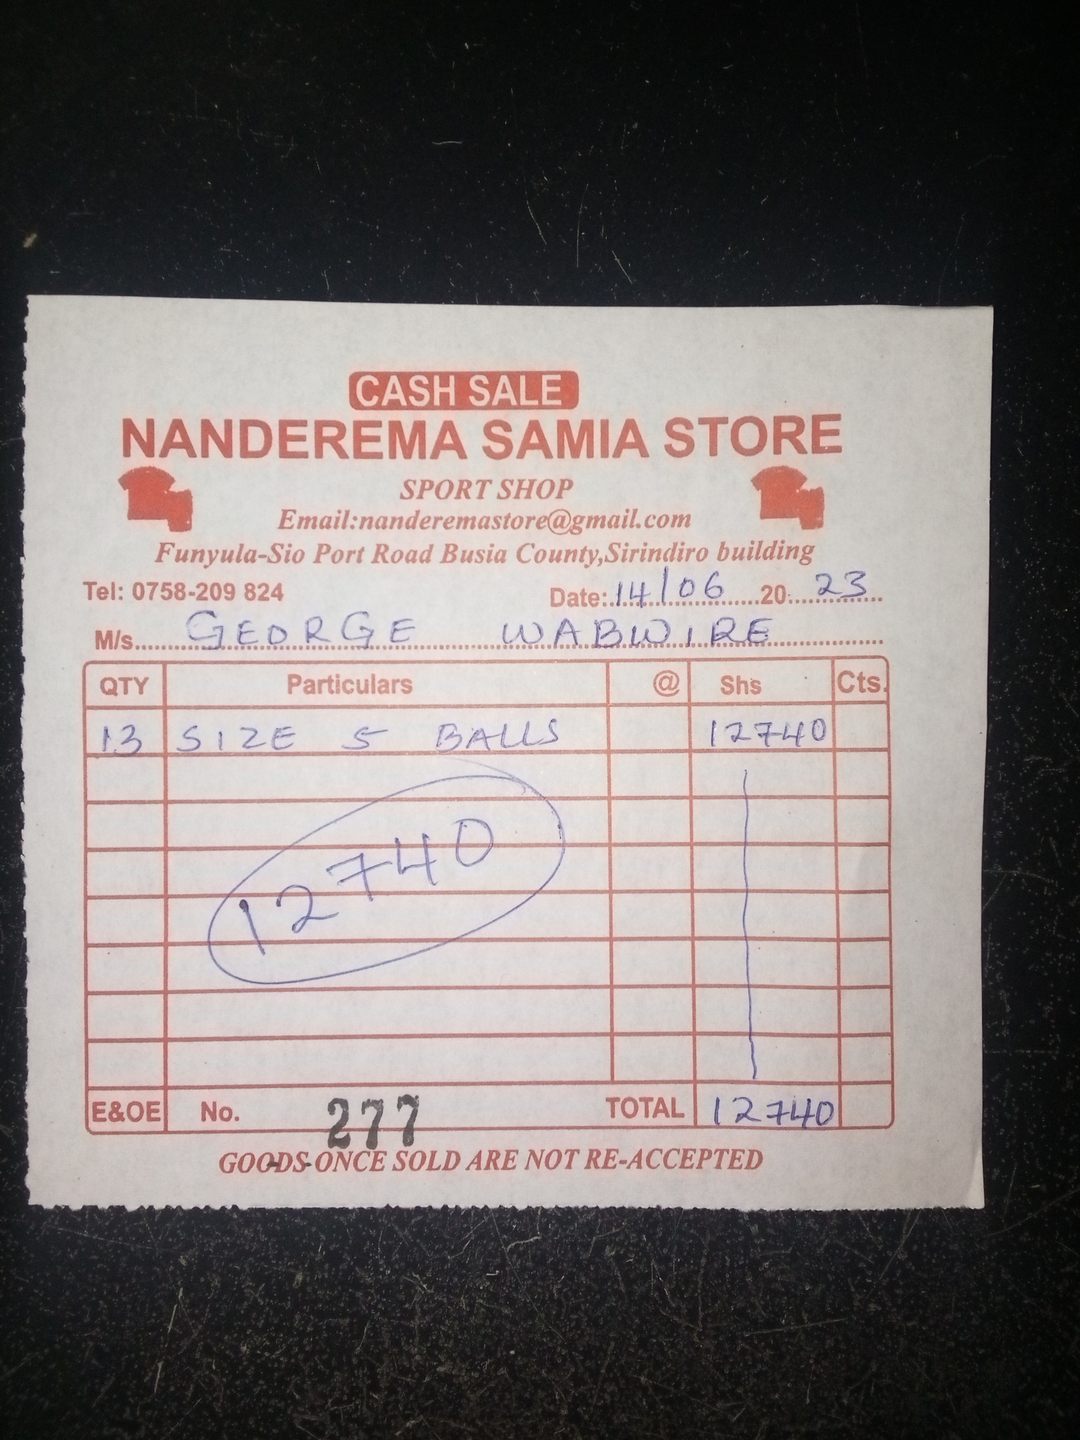 CASH SALE
NANDEREMA SAMIA STORE
SPORT SHOP
Email:nanderemastore@gmail.com
Funyula-Sio Port Road Busia County,Sirindiro building
Tel: 0758-209 824 Date:.14/06 20 23
M/s GEORGE WABWIRE
QTY Particulars @ Shs Cts.
13 SIZE 5 BALLS 12740
12740
E&OE No. 277 TOTAL 12740
GOODS ONCE SOLD ARE NOT RE-ACCEPTED